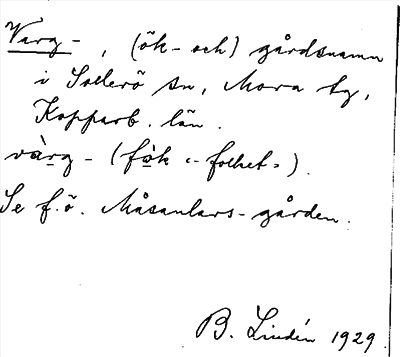 Varg-, (ök- och) gårdsnamn
i Sollerö sn, Mora tg,
Kopparb. län.
vàrg- (fòk «-folket»).
Se f.ö. Måsanlars-gården.
B. Lindén 1929.